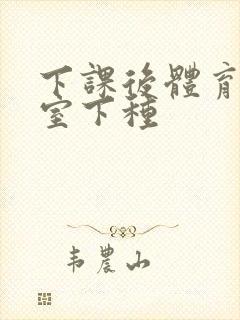 下課後體育
室下種
韦農山